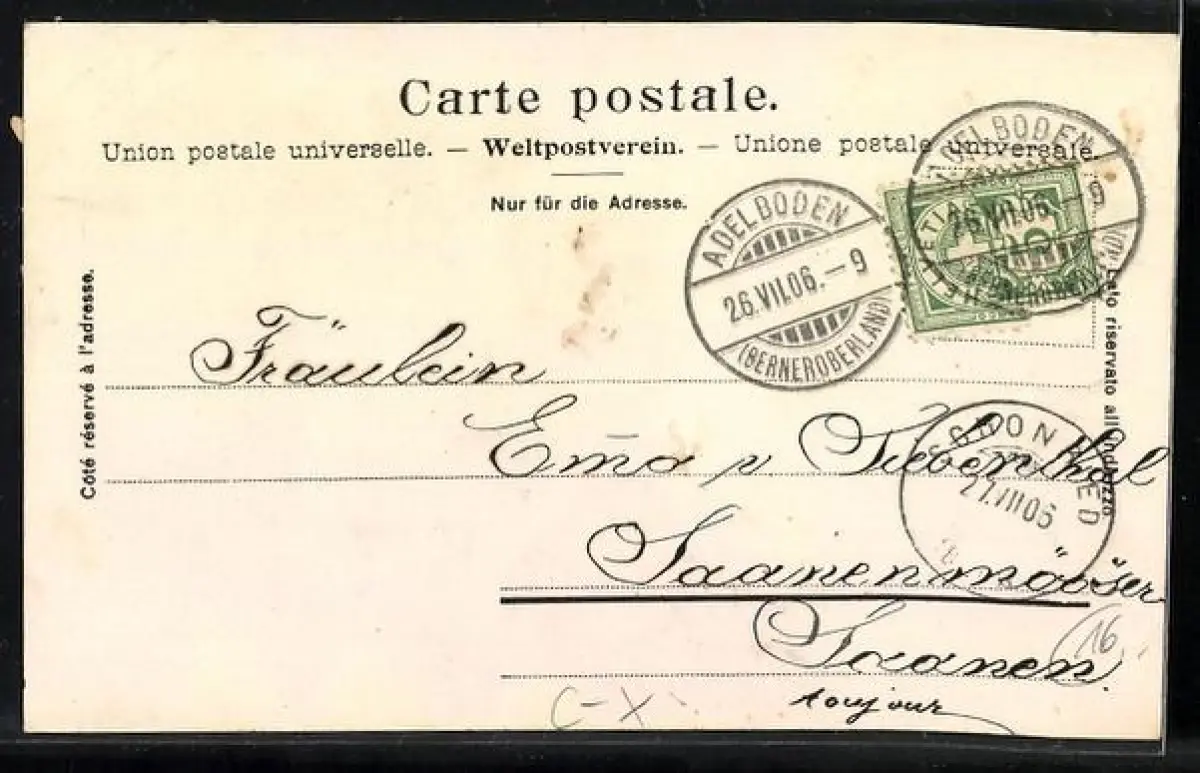 Carte postale.
Union postale universelle. — Weltpostverein. — Unione postale universale.
Nur für die Adresse.
ADELBODEN
26.VII.06.–9
(BERNEROBERLAND)
ADELBODEN
26.VII.06.–9
(BERNEROBERLAND)
HELVETIA
Côté réservé à l'adresse.
Lato riservato all'indirizzo.
Fräulein
Em̄a v. Siebenthal
27.VII.06
Saanenmööser
Saanen.
16
toujour
C-X